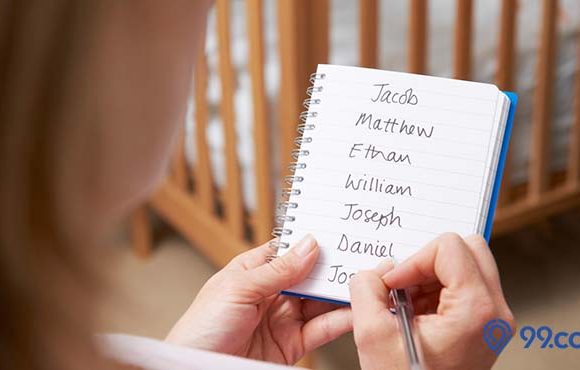 Jacob
Matthew
Ethan
William
Joseph
Daniel
Jos
99.co